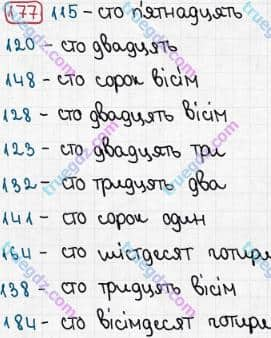 177 115 - сто п'ятнадцять
120 - сто двадцять
148 - сто сорок вісім
128 - сто двадцять вісім
123 - сто двадцять три
132 - сто тридцять два
141 - сто сорок один
164 - сто шістдесят чотири
138 - сто тридцять вісім
184 - сто вісімдесят чотири